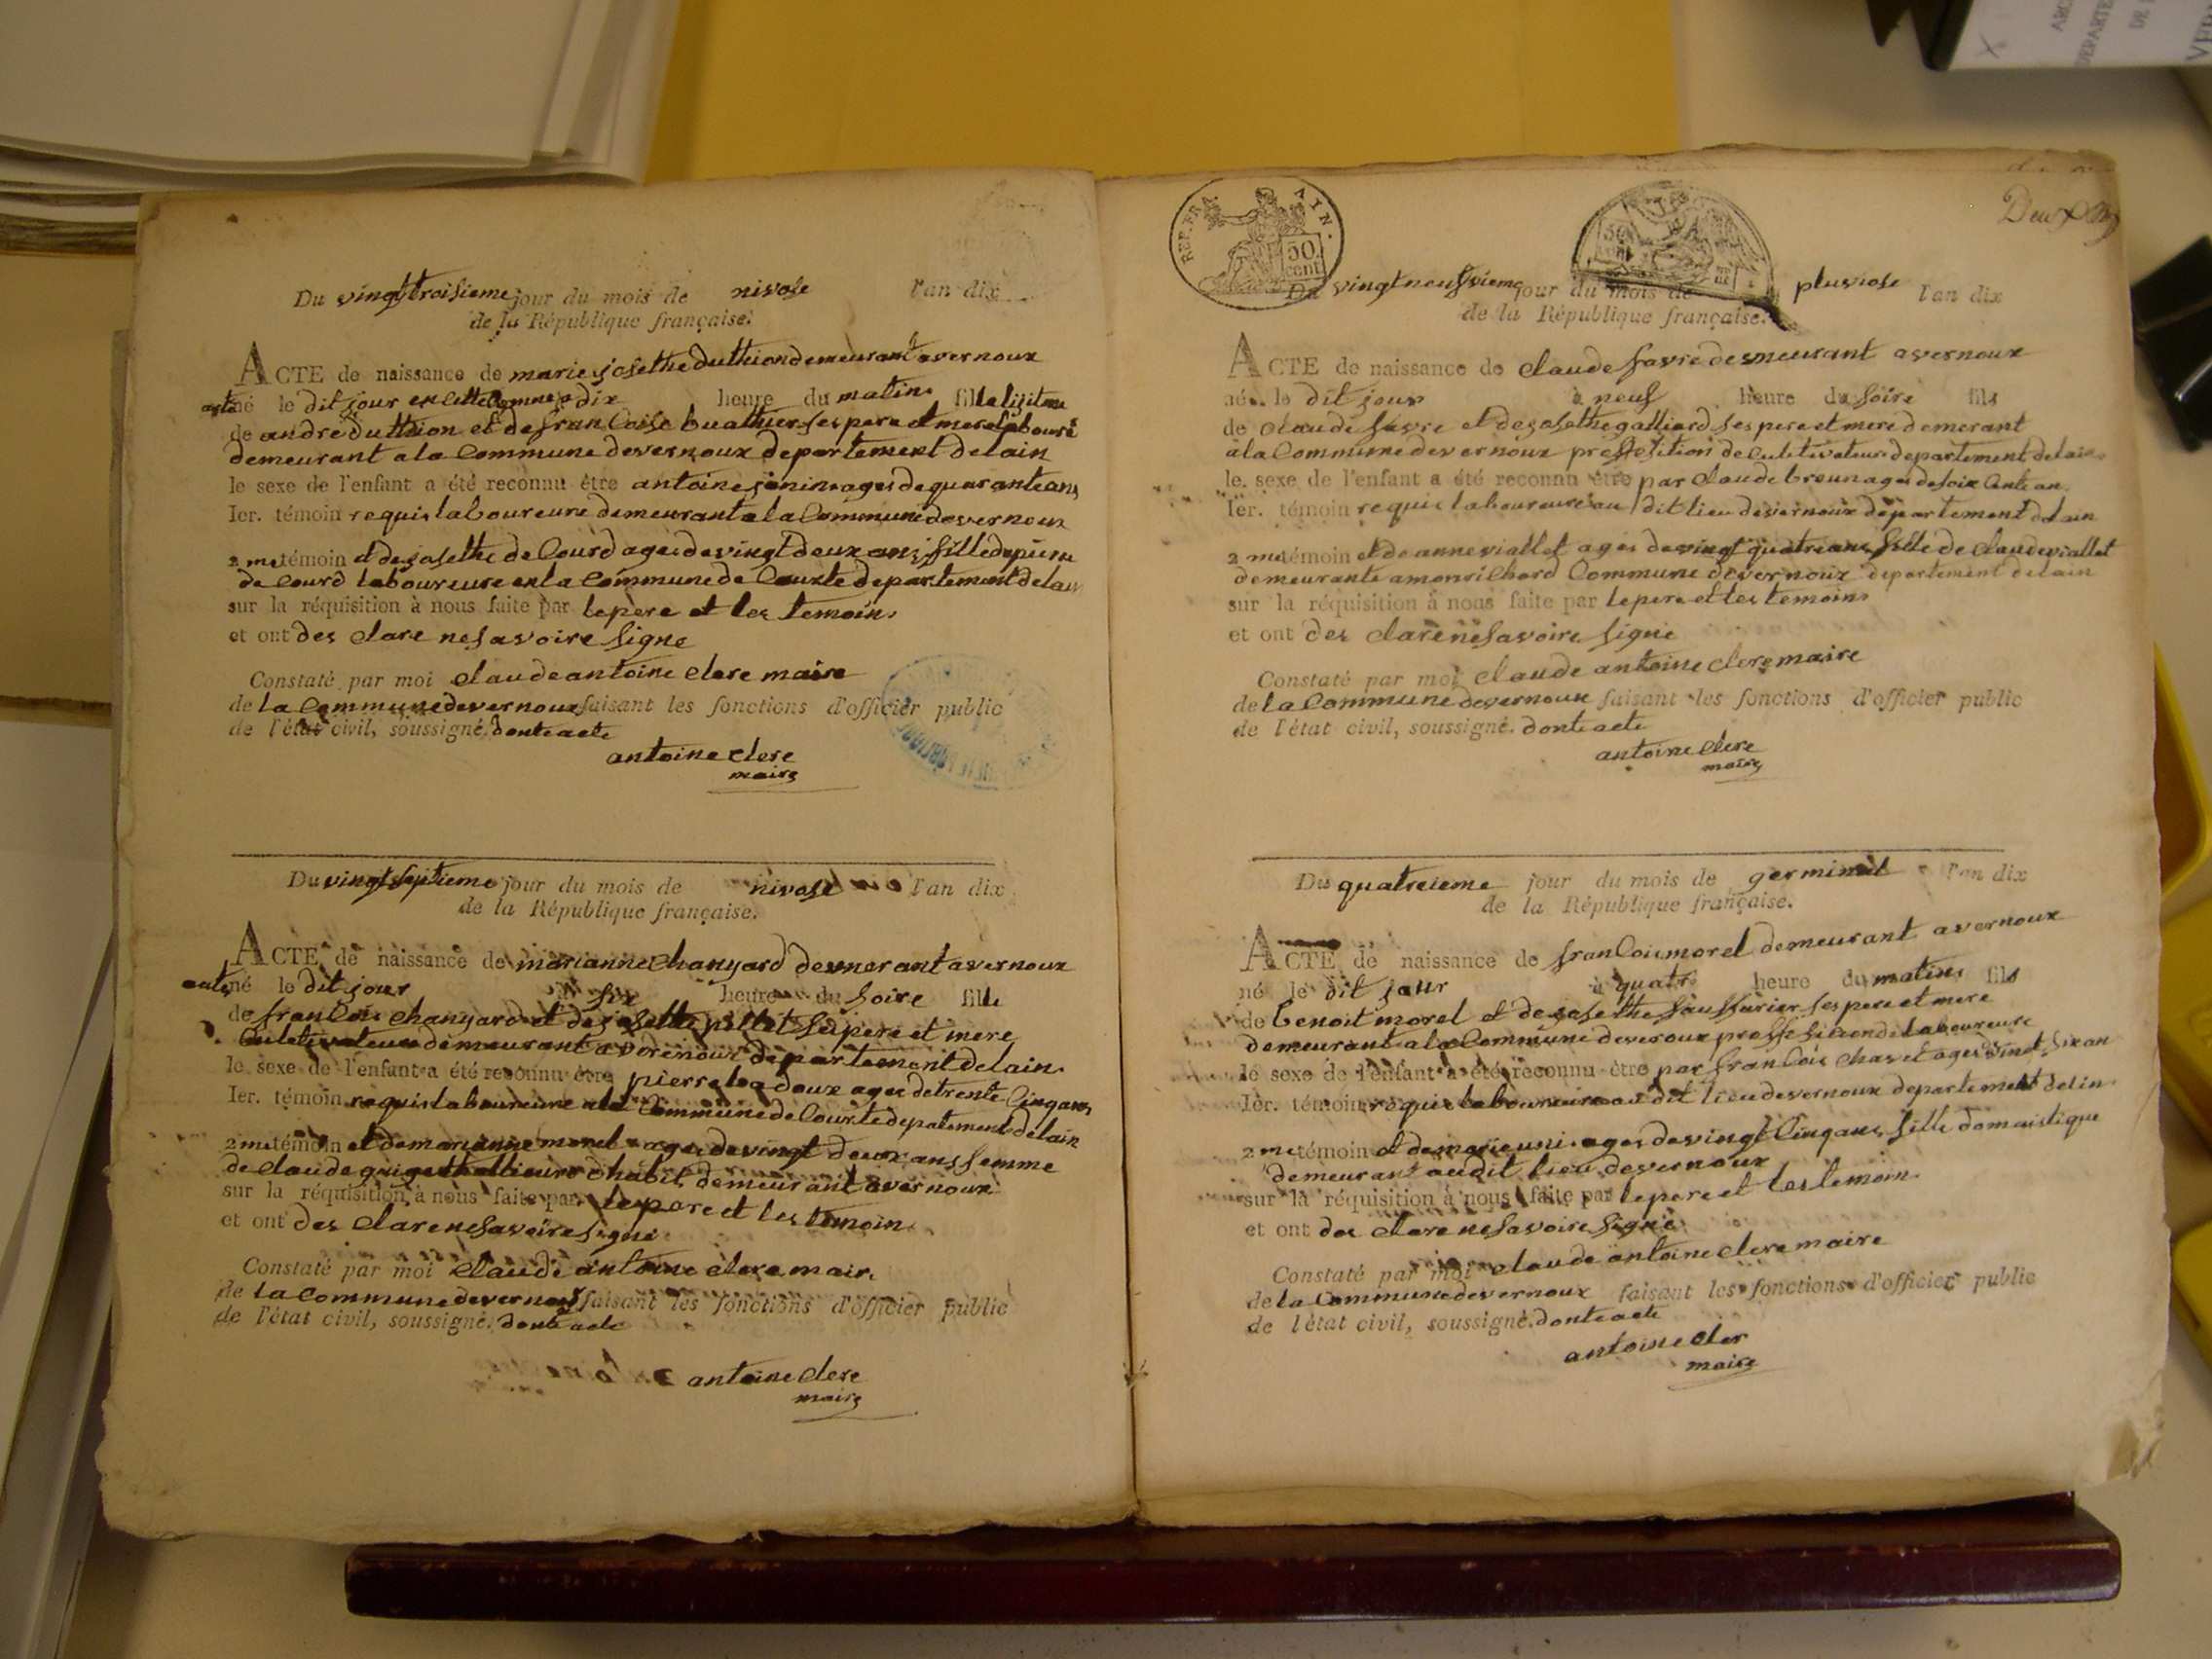 Du vingttroisieme jour du mois de nivose l'an dix
de la République française.
ACTE de naissance de marie josethe duthion demeurant avernoux
né le dit jour dix heure du matin fille
de andre duthion et de francoise buathier ses pere et mere
demeurant a la Commune devernoux departement delain
le sexe de l'enfant a été reconnu être antoine janin ages de quarante ans
Ier. témoin requis laboureure demeurant a la Commune devernoux
2 me témoin et de josethe de Courd ages de vingt deux ans fille de pierre
de Courd laboureure en la Commune de Courte departement delain
sur la réquisition à nous faite par lepere et les temoin
et ont des clare ne savoire signe
Constaté par moi claude antoine clere maire
de la Commune devernoux faisant les fonctions d'officier public
de l'état civil, soussigné. dont acte
antoine clere
maire
Du vingt septieme jour du mois de nivose l'an dix
de la République française.
ACTE de naissance de marianne Chanyard demerant avernoux
né le dit jour six heure du soire fille
de francois chanyard et de josette pillet ses pere et mere
Culetivateur demeurant departement delain
le sexe de l'enfant a été reconnu être pierre badoux ages de trente Cinq ans
Ier. témoin requis laboureure a la Commune de Courte depatement delain
2 me témoin et de marianne morel ages de vingt deux ans femme
de claude d'habit demeurant avernoux
sur la réquisition à nous faite par lepere et les temoin
et ont des clare ne savoire signe
Constaté par moi claude antoine clere maire
de la Commune devernoux faisant les fonctions d'officier public
de l'état civil, soussigné. dont acte
antoine clere
maire
REP. FRA. AIN.
50 cent
Deux
Du vingt neufvieme jour du mois de pluviose l'an dix
de la République française.
ACTE de naissance de claude favre demeurant avernoux
né le dit jour à neuf heure du soire fils
de claude favre et de josethe galliard ses pere et mere demerant
a la Commune devernoux proffesition de culetivateur departement delain
le sexe de l'enfant a été reconnu être par claude breun ages de soixante an
Ier. témoin requis laboureure au dit lieu devernoux departement delain
2 me témoin et de anne viallet ages de vingt quatre ans fille de claude viallet
demeurante a monrichard Commune devernoux departement delain
sur la réquisition à nous faite par lepere et les temoin
et ont des clare ne savoire signe
Constaté par moi claude antoine clere maire
de la Commune devernoux faisant les fonctions d'officier public
de l'état civil, soussigné. dont acte
antoine clere
maire
Du quatreieme jour du mois de germinal l'an dix
de la République française.
ACTE de naissance de francois morel demeurant avernoux
né le dit jour à quatre heure du matin fils
de benoit morel et de josethe ses pere et mere
demeurant a la Commune deveroux proffesition de laboureure
le sexe de l'enfant a été reconnu être par francois chavet ages vingt six an
Ier. témoin requis laboureure au dit lieu devernoux departement delin
2 me témoin et de marie ages de vingt Cinq ans fille domaistique
demeurant audit lieu devernoux
sur la réquisition à nous faite par lepere et les temoin
et ont des clare ne savoire signe
Constaté par moi claude antoine clere maire
de la Commune devernoux faisant les fonctions d'officier public
de l'état civil, soussigné. dont acte
antoine cler
maire